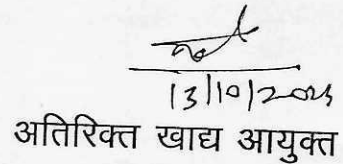 13/10/2023
अतिरिक्त खाद्य आयुक्त